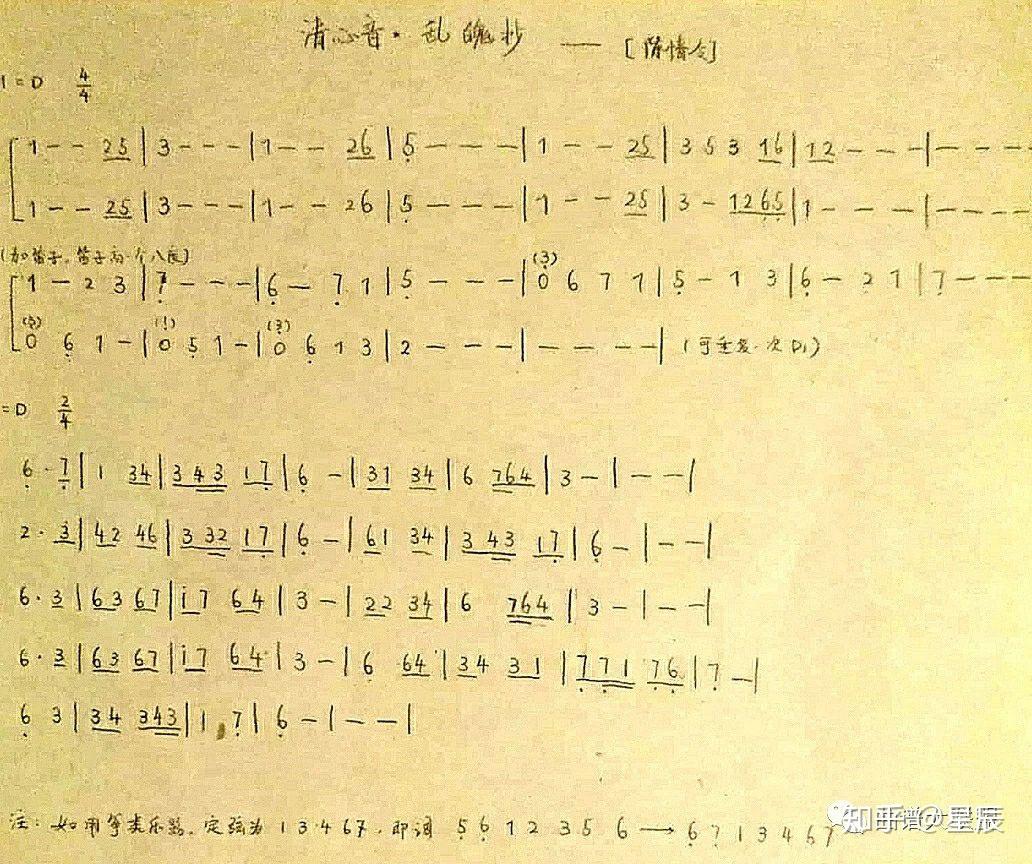 清心音·乱魄抄 —— [陈情令]
1=D 4/4
1 - - 25 | 3 - - - | 1 - - 26 | 5̣ - - - | 1 - - 25 | 3 5 3 16 | 12 - - - | - - - -
1 - - 25 | 3 - - - | 1 - - 26 | 5̣ - - - | 1 - - 25 | 3 - 126̣5̣ | 1 - - - | - - - -
(加笛子,笛子高一个八度)
1 - 2 3 | 7̣ - - - | 6̣ - 7̣ 1 | 5̣ - - - | (3)0 6 7 1 | 5̣ - 1 3 | 6̣ - 2 1 | 7̣ - - -
0 6̣ 1 - | (1)0 5̣ 1 - | (3)0 6̣ 1 3 | 2 - - - | - - - - | (可重复一次)
=D 2/4
6̣ · 7̣ | 1 34 | 343 17̣ | 6̣ - | 31 34 | 6 764 | 3 - | - - |
2 · 3 | 42 46 | 332 17̣ | 6̣ - | 61 34 | 343 17̣ | 6̣ - | - - |
6 · 3 | 63 67 | i7 64 | 3 - | 22 34 | 6 764 | 3 - | - - |
6 · 3 | 63 67 | i7 64 | 3 - | 6 64 | 34 31 | 7̣7̣1 7̣6̣ | 7̣ - |
6̣ 3 | 34 343 | 1 7̣ | 6̣ - | - - |
注:如用筝类乐器,定弦为 1 3 4 6 7,即调 5̣ 6̣ 1 2 3 5 6 → 6̣ 7̣ 1 3 4 6 7
知乎 @星辰